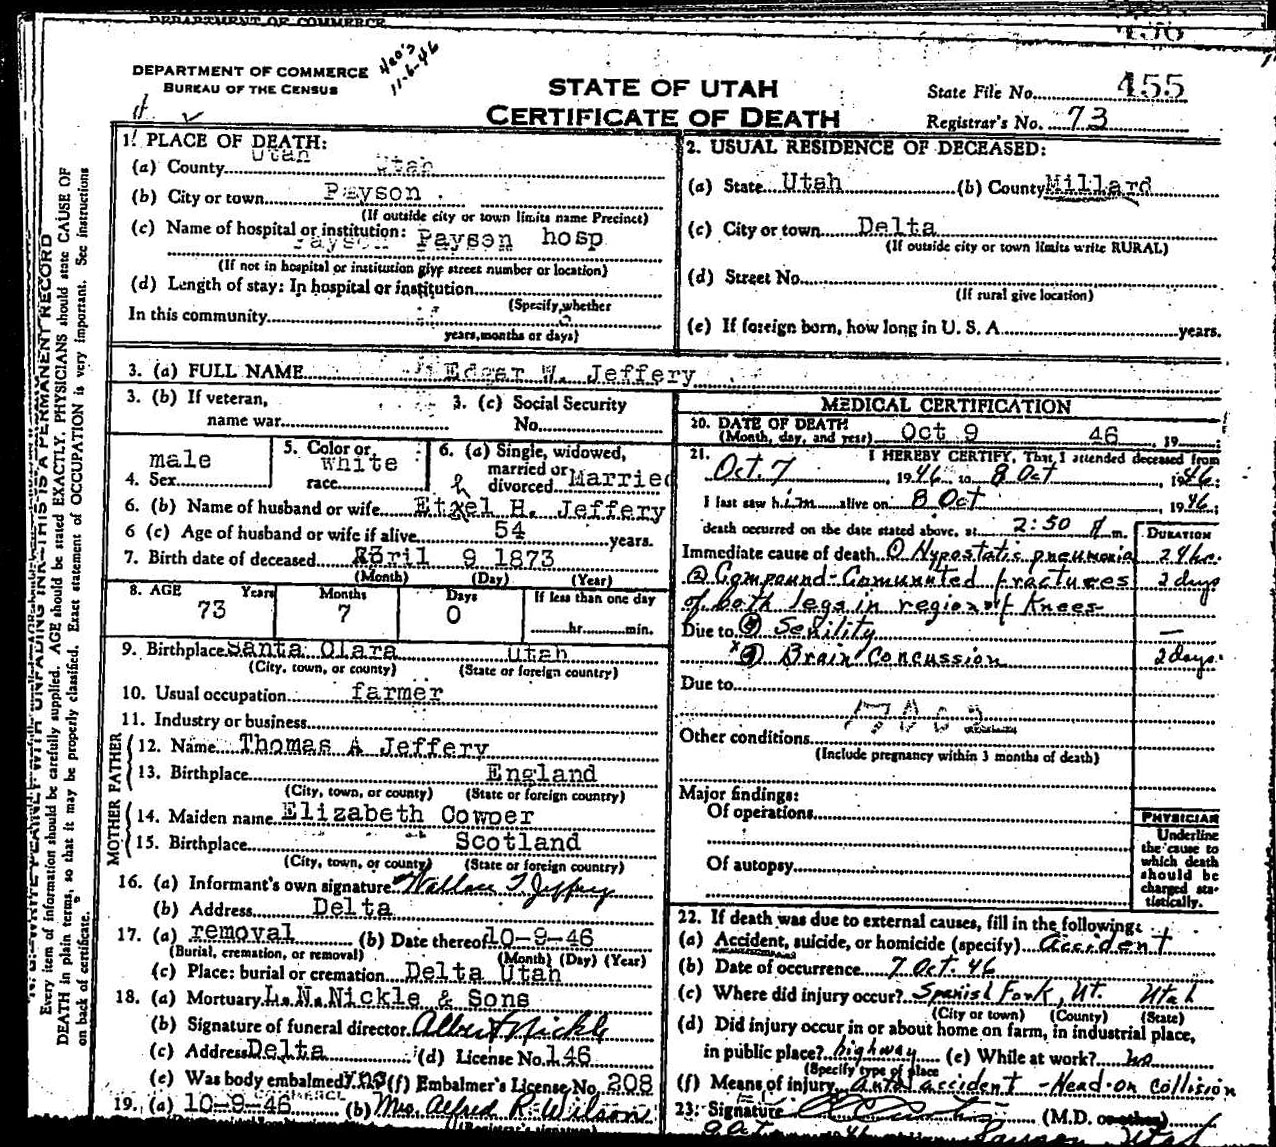 DEPARTMENT OF COMMERCE
456
DEPARTMENT OF COMMERCE
BUREAU OF THE CENSUS
11-6-46
STATE OF UTAH
CERTIFICATE OF DEATH
State File No. 455
Registrar's No. 73
Every item of information should be carefully supplied. AGE should be stated EXACTLY. PHYSICIANS should state CAUSE OF
DEATH in plain terms, so that it may be properly classified. Exact statement of OCCUPATION is very important. See instructions
on back of certificate.
1. PLACE OF DEATH:
(a) County Utah Utah
(b) City or town Payson
(If outside city or town limits name Precinct)
(c) Name of hospital or institution:
Payson Payson hosp
(If not in hospital or institution give street number or location)
(d) Length of stay: In hospital or institution
(Specify whether
In this community
years, months or days)
2. USUAL RESIDENCE OF DECEASED:
(a) State Utah (b) County Millard
(c) City or town Delta
(If outside city or town limits write RURAL)
(d) Street No.
(If rural give location)
(e) If foreign born, how long in U. S. A. years.
3. (a) FULL NAME Edgar W. Jeffery
3. (b) If veteran, 3. (c) Social Security
name war No.
4. Sex male
5. Color or race white
6. (a) Single, widowed, married or divorced Married
6. (b) Name of husband or wife Ethel H. Jeffery
6 (c) Age of husband or wife if alive 54 years.
7. Birth date of deceased April 9 1873
(Month) (Day) (Year)
8. AGE Years Months Days If less than one day
73 7 0 hr. min.
9. Birthplace Santa Clara Utah
(City, town, or county) (State or foreign country)
10. Usual occupation farmer
11. Industry or business
FATHER
12. Name Thomas A Jeffery
13. Birthplace England
(City, town, or county) (State or foreign country)
MOTHER
14. Maiden name Elizabeth Cowper
15. Birthplace Scotland
(City, town, or county) (State or foreign country)
16. (a) Informant's own signature Wallace T Jeffery
(b) Address Delta
17. (a) removal (b) Date thereof 10-9-46
(Burial, cremation, or removal) (Month) (Day) (Year)
(c) Place: burial or cremation Delta Utah
18. (a) Mortuary L. N. Nickle & Sons
(b) Signature of funeral director Albert Nickle
(c) Address Delta (d) License No. 146
(e) Was body embalmed yes (f) Embalmer's License No. 208
19. (a) 10-9-46 (b) Mrs. Alfred R. Wilson
MEDICAL CERTIFICATION
20. DATE OF DEATH
(Month, day, and year) Oct 9 46, 19
21. I HEREBY CERTIFY, That I attended deceased from
Oct. 7, 1946 to 8 Oct, 1946;
I last saw him alive on 8 Oct 1946;
death occurred on the date stated above, at 2:50 A m.
DURATION
Immediate cause of death ① Hypostatic pneumonia 24 hrs.
② Compound-Comunnted fractures 2 days
of both legs in region of Knees
Due to ③ Senility —
④ Brain Concussion 2 days.
Due to
Other conditions
(Include pregnancy within 3 months of death)
Major findings:
Of operations
Of autopsy
PHYSICIAN
Underline
the cause to
which death
should be
charged sta-
tistically.
22. If death was due to external causes, fill in the following:
(a) Accident, suicide, or homicide (specify) accident
(b) Date of occurrence 7 Oct. 46
(c) Where did injury occur? Spanish Fork, UT. Utah
(City or town) (County) (State)
(d) Did injury occur in or about home on farm, in industrial place,
in public place? highway (e) While at work? no
(Specify type of place
(f) Means of injury auto accident - Head-on collision
23. Signature (M.D. or other)
Payson Utah